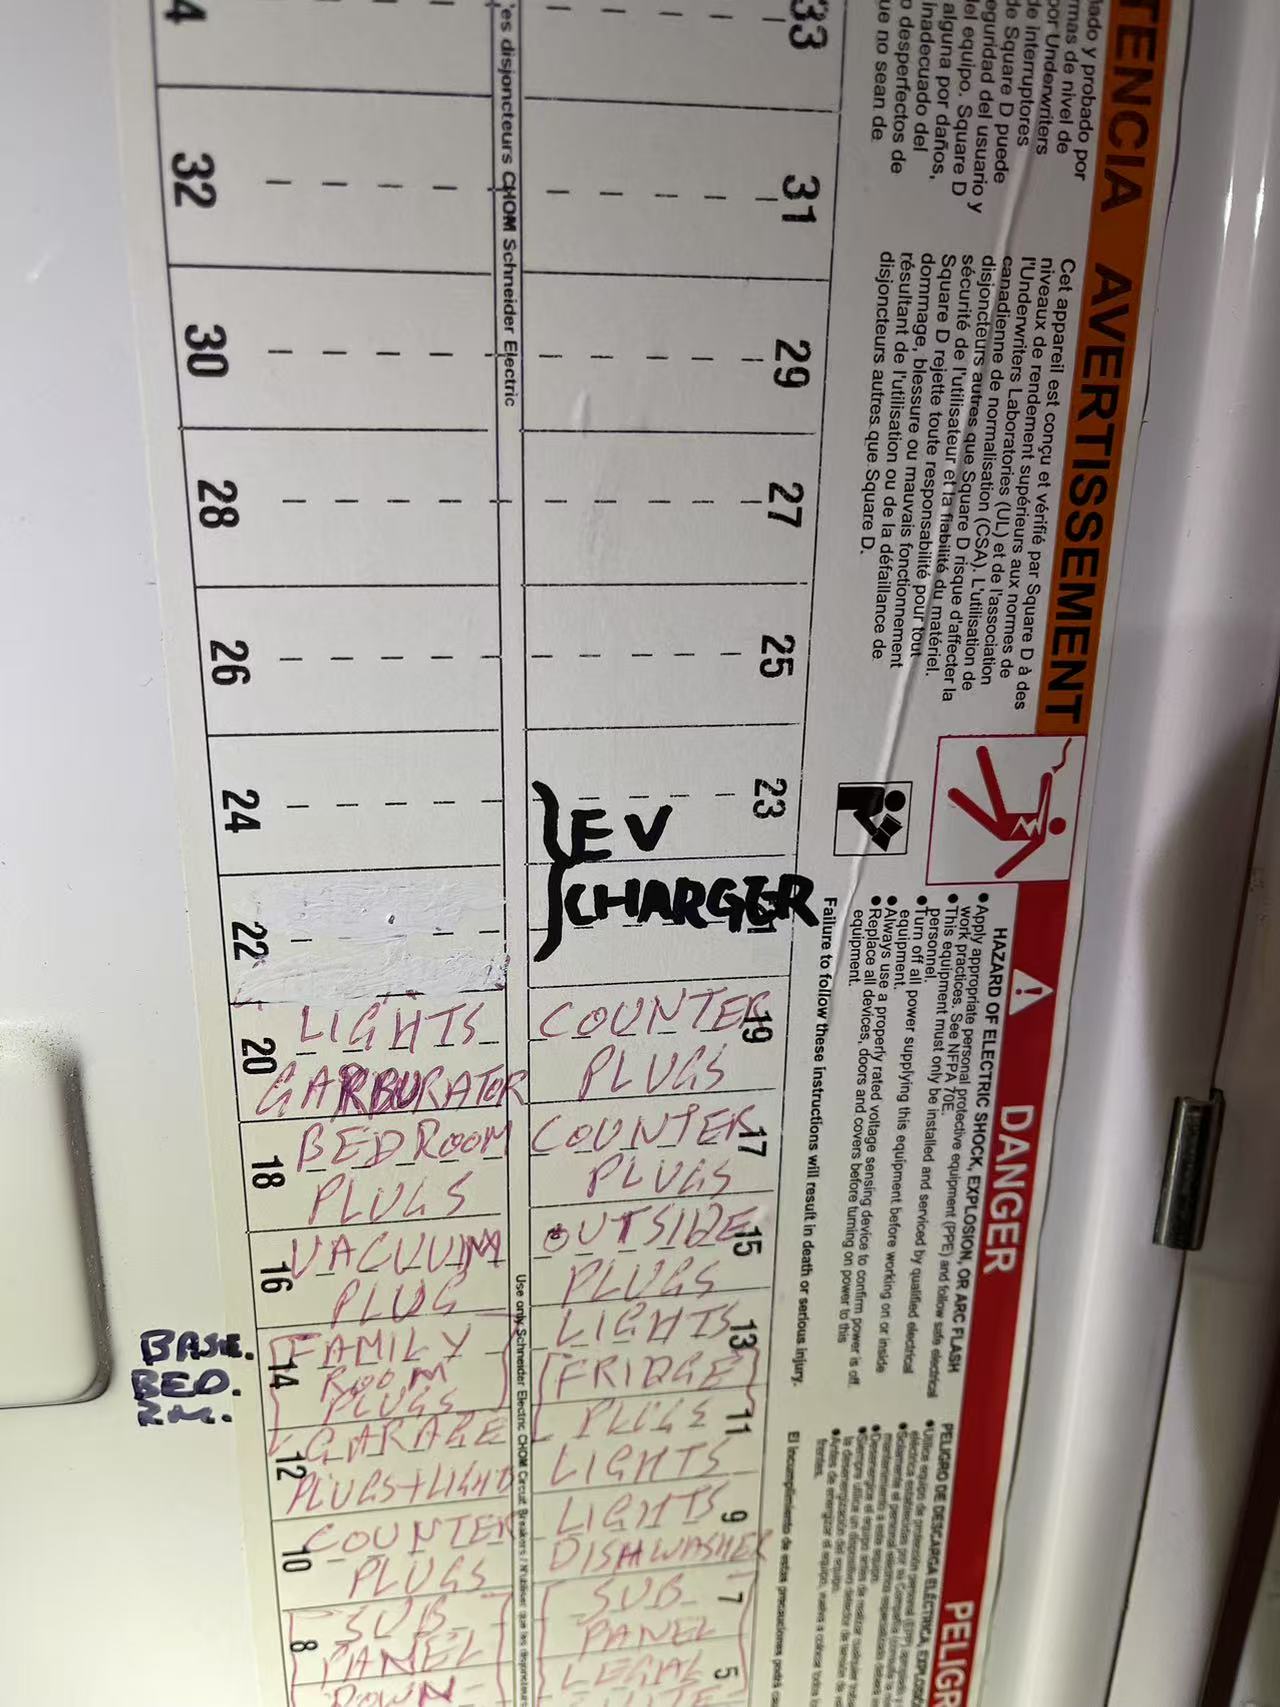 TENCIA
nado y probado por
mas de nivel de
por Underwriters
de interruptores
de Square D puede
eguridad del usuario y
del equipo. Square D
alguna por daños,
inadecuado del
o desperfectos de
ue no sean de
AVERTISSEMENT
Cet appareil est conçu et vérifié par Square D à des
niveaux de rendement supérieurs aux normes de
l'Underwriters Laboratories (UL) et de l'association
canadienne de normalisation (CSA). L'utilisation de
disjoncteurs autres que Square D risque d'affecter la
sécurité de l'utilisateur et la fiabilité du matériel.
Square D rejette toute responsabilité pour tout
dommage, blessure ou mauvais fonctionnement
résultant de l'utilisation ou de la défaillance de
disjoncteurs autres que Square D.
DANGER
HAZARD OF ELECTRIC SHOCK, EXPLOSION, OR ARC FLASH
● Apply appropriate personal protective equipment (PPE) and follow safe electrical
work practices. See NFPA 70E.
● This equipment must only be installed and serviced by qualified electrical
personnel.
● Turn off all power supplying this equipment before working on or inside
equipment.
● Always use a properly rated voltage sensing device to confirm power is off.
● Replace all devices, doors and covers before turning on power to this
equipment.
Failure to follow these instructions will result in death or serious injury.
PELIGR
PELIGRO DE DESCARGA ELÉCTRICA, EXPLOSIÓ
El incumplimiento de estas precauciones podrá
'es disjoncteurs CHOM Schneider Electric
Use only Schneider Electric CHOM Circuit Breakers / N'utiliser que les disjoncteurs
4
33
32
31
30
29
28
27
26
25
24
23
EV
22
CHARGER
20
LIGHTS
GARBURATOR
19
COUNTER
PLUGS
18
BEDROOM
PLUGS
17
COUNTER
PLUGS
16
VACUUM
PLUG
15
OUTSIDE
PLUGS
BASE.
BED.
RM.
14
FAMILY
ROOM
PLUGS
13
LIGHTS
FRIDGE
12
GARAGE
PLUGS+LIGHTS
11
PLUGS
LIGHTS
10
COUNTER
PLUGS
9
LIGHTS
DISHWASHER
8
SUB
PANEL
DOWN
7
SUB
PANEL
5
LEGAL
SUITE